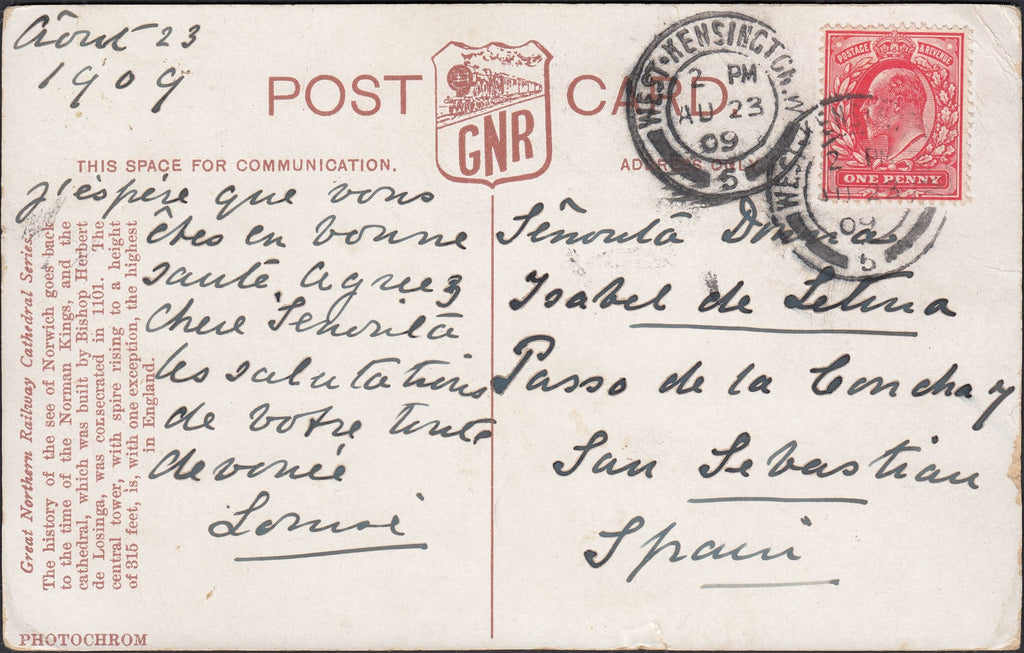 Août 23
1909
POST CARD
GNR
THIS SPACE FOR COMMUNICATION.
ADDRESS ONLY
WEST·KENSINGTON.W
2 PM
AU 23
09
5
POSTAGE & REVENUE
ONE PENNY
2 PM
09
5
j'éspére que vous
êtes en bonne
santé agreez
chere Señorità
les salutations
de votre toute
devouée
Louise
Señorità
Isabel de
Passo de la Concha 7
San Sebastian
Spain
Great Northern Railway Cathedral Series.
The history of the see of Norwich goes back
to the time of the Norman Kings, and the
cathedral, which was built by Bishop Herbert
de Losinga, was consecrated in 1101. The
central tower, with spire rising to a height
of 315 feet, is, with one exception, the highest
in England.
PHOTOCHROM